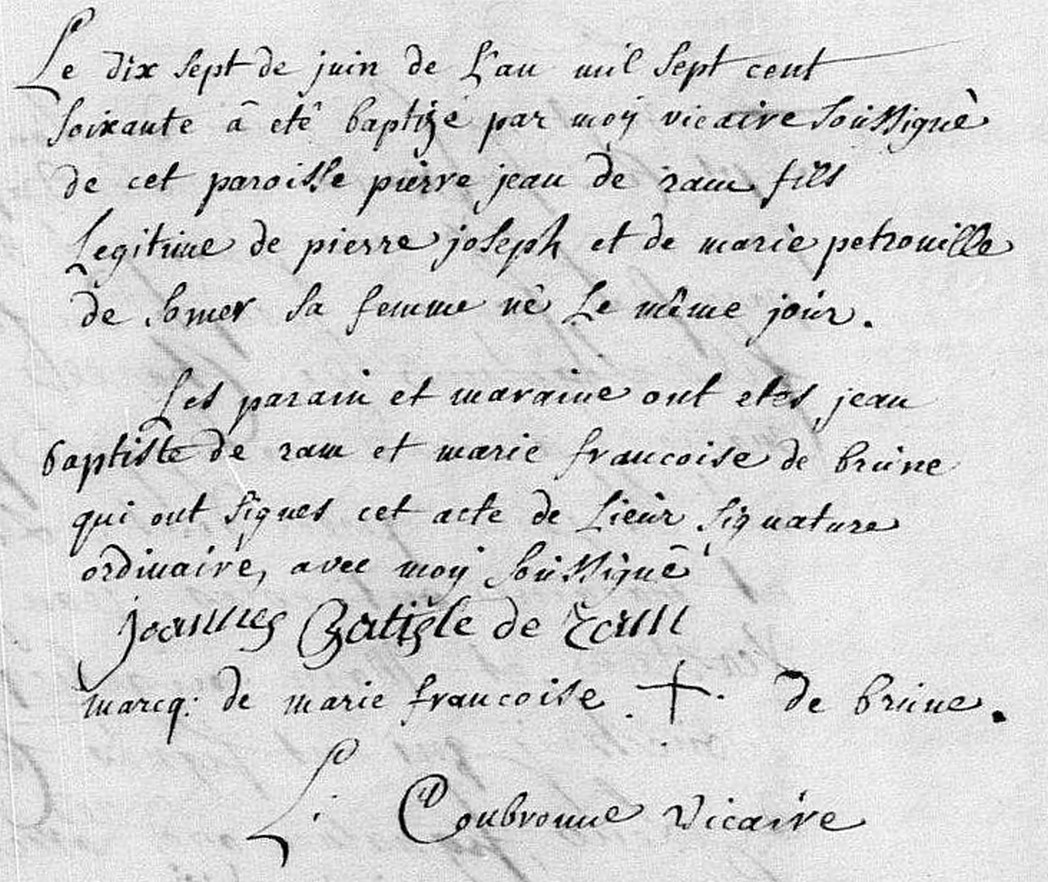 Le dix sept de juin de L'an mil sept cent
soixante â etê baptizé par moÿ vicaire soussignè
de cet paroisse pierre jean de ram fils
Legitime de pierre joseph et de marie petronille
de somer sa femme nê Le même jour.
Les parain et maraine ont etes jean
baptiste de ram et marie francoise de brune
qui ont signes cet acte de Lieur signature
ordinaire, avec moÿ soussignê
joannes Batiste de Ram
marcq: de marie francoise . + . de brune.
L. Coubronne vicaire